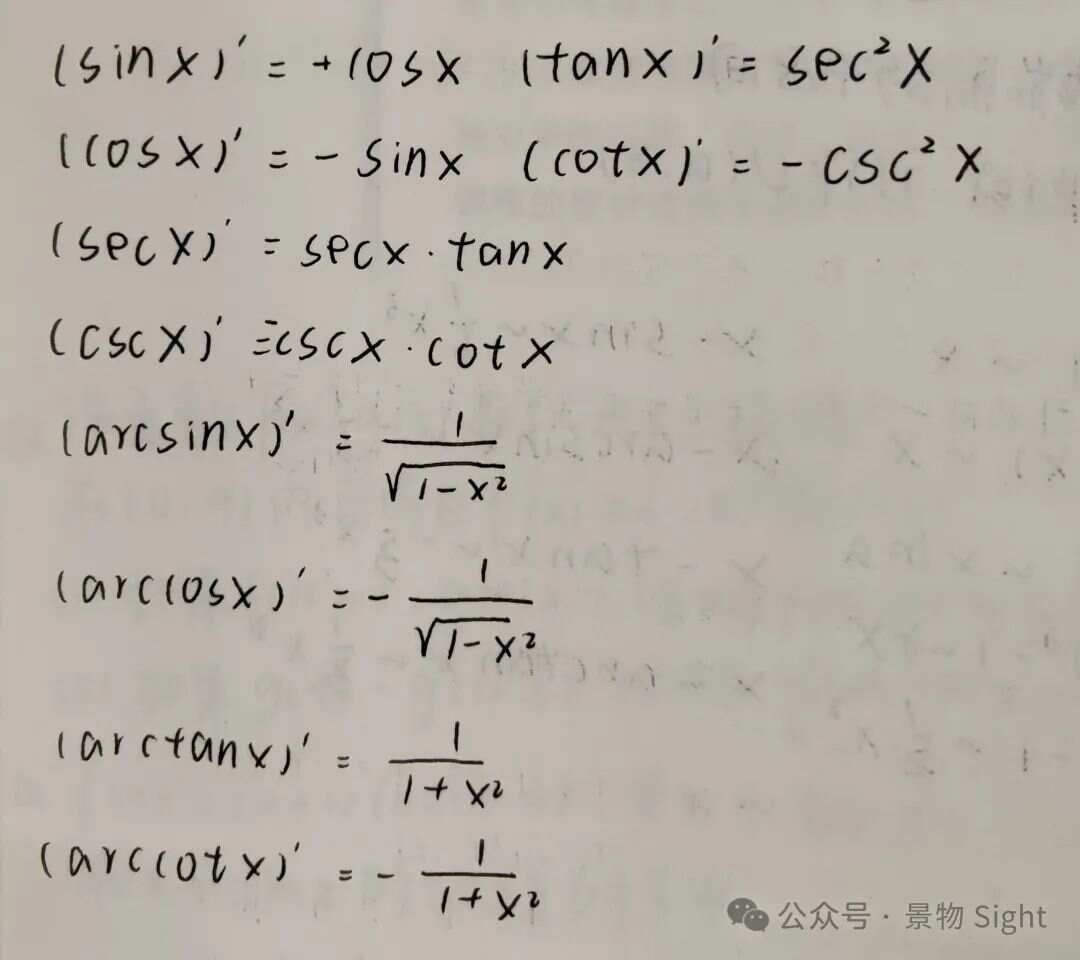 (sinx)' = +cosx (tanx)' = sec²x
(cosx)' = - sinx (cotx)' = - csc²x
(secx)' = secx · tanx
(cscx)' = -cscx · cotx
(arcsinx)' = 1/√(1-x²)
(arccosx)' = - 1/√(1-x²)
(arctanx)' = 1/(1+x²)
(arccotx)' = - 1/(1+x²)
公众号 · 景物 Sight